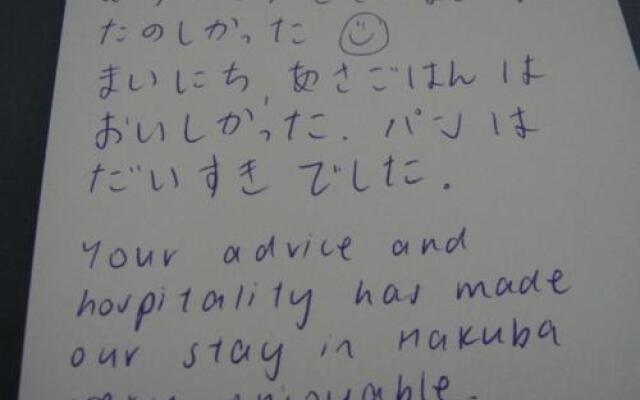 たのしかった
まいにち, あさごはん は
おいしかった. パン は
だいすき でした.
your advice and
hospitality has made
our stay in Hakuba
enjoyable.